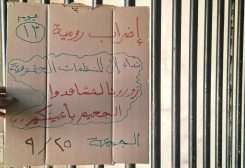 يوم
١٣
إضراب رومية
نداء إلى المنظمات الحقوقية
زورينا لتشاهدوا
الجحيم بأعينكم ..
الجمعة ٩/٢٥